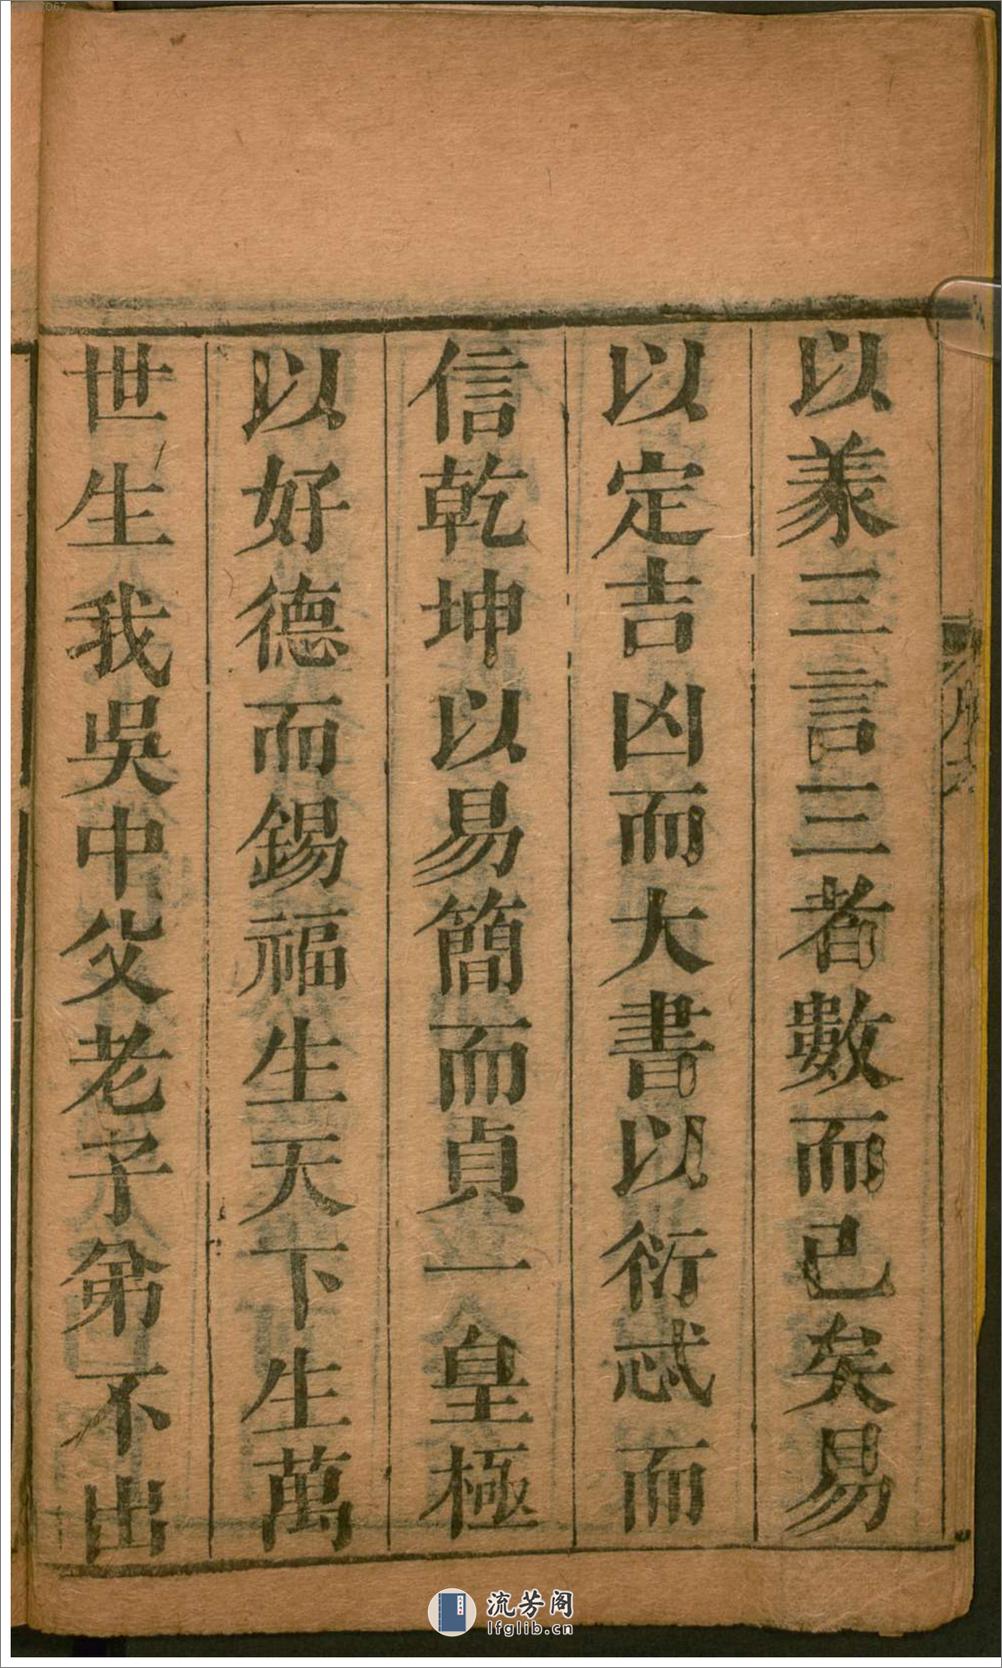 以羕三言三者數而已矣易
以定吉凶而大書以衍忒而
信乾坤以易簡而貞一皇極
以好德而錫福生天下生萬
世生我吳中父老子弟不出
序
流芳阁
lfglib.cn